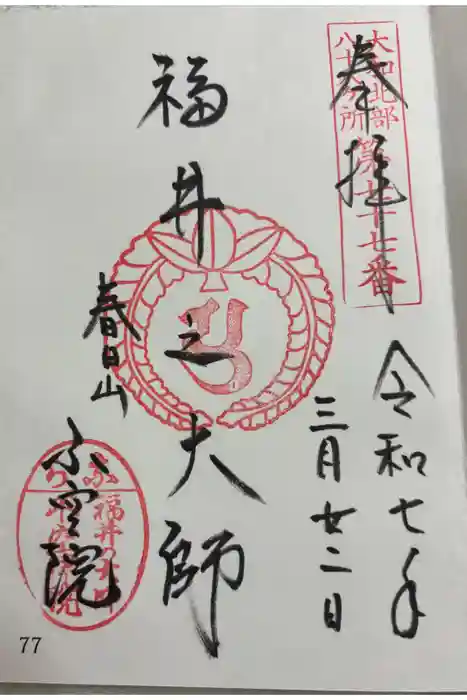 大和北部
八十八ヶ所
第七十七番
奉拝
令和七年
三月廿二日
福井之大師
春日山
不空院
なら
福井の大師
不空院
77